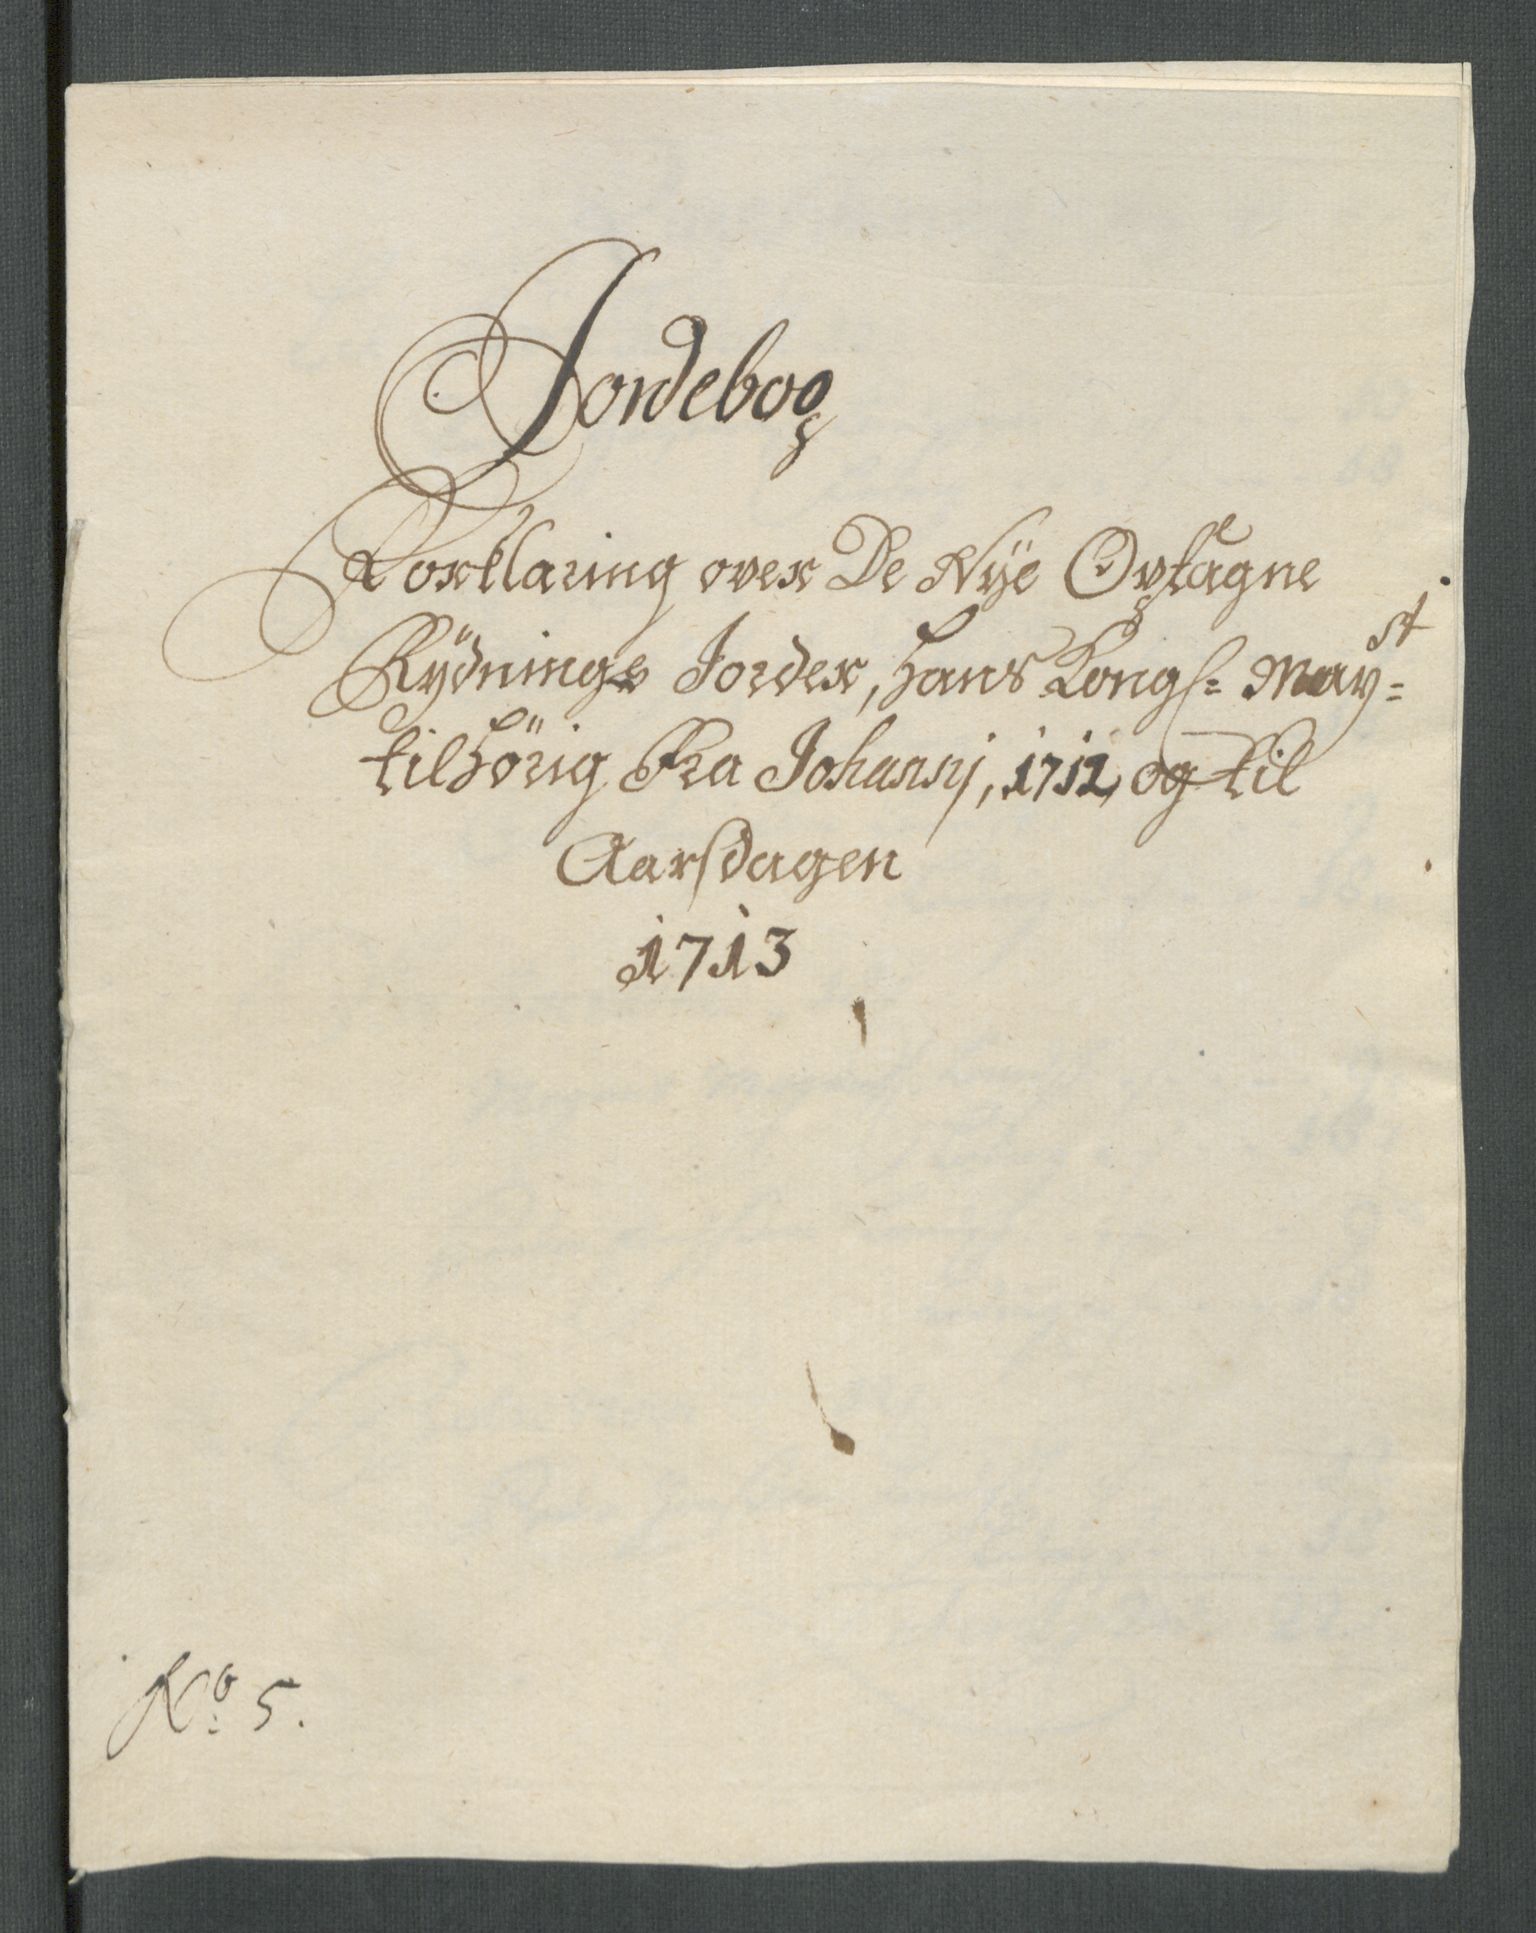 Jordebog
Forklaring over De Nÿe Optagne
Rÿdnings Jorder, Hans Kongl: May:st
tilhörig Fra Johannj, 1712, og til
Aarsdagen
1713
No: 5.